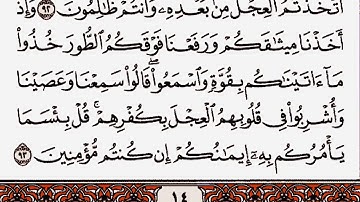 ٱتَّخَذْتُمُ ٱلْعِجْلَ مِنۢ بَعْدِهِۦ وَأَنتُمْ ظَٰلِمُونَ ٩٢ وَإِذْ
أَخَذْنَا مِيثَٰقَكُمْ وَرَفَعْنَا فَوْقَكُمُ ٱلطُّورَ خُذُوا۟
مَآ ءَاتَيْنَٰكُم بِقُوَّةٍ وَٱسْمَعُوا۟ ۖ قَالُوا۟ سَمِعْنَا وَعَصَيْنَا
وَأُشْرِبُوا۟ فِى قُلُوبِهِمُ ٱلْعِجْلَ بِكُفْرِهِمْ ۚ قُلْ بِئْسَمَا
يَأْمُرُكُم بِهِۦٓ إِيمَٰنُكُمْ إِن كُنتُم مُّؤْمِنِينَ ٩٣
١٤